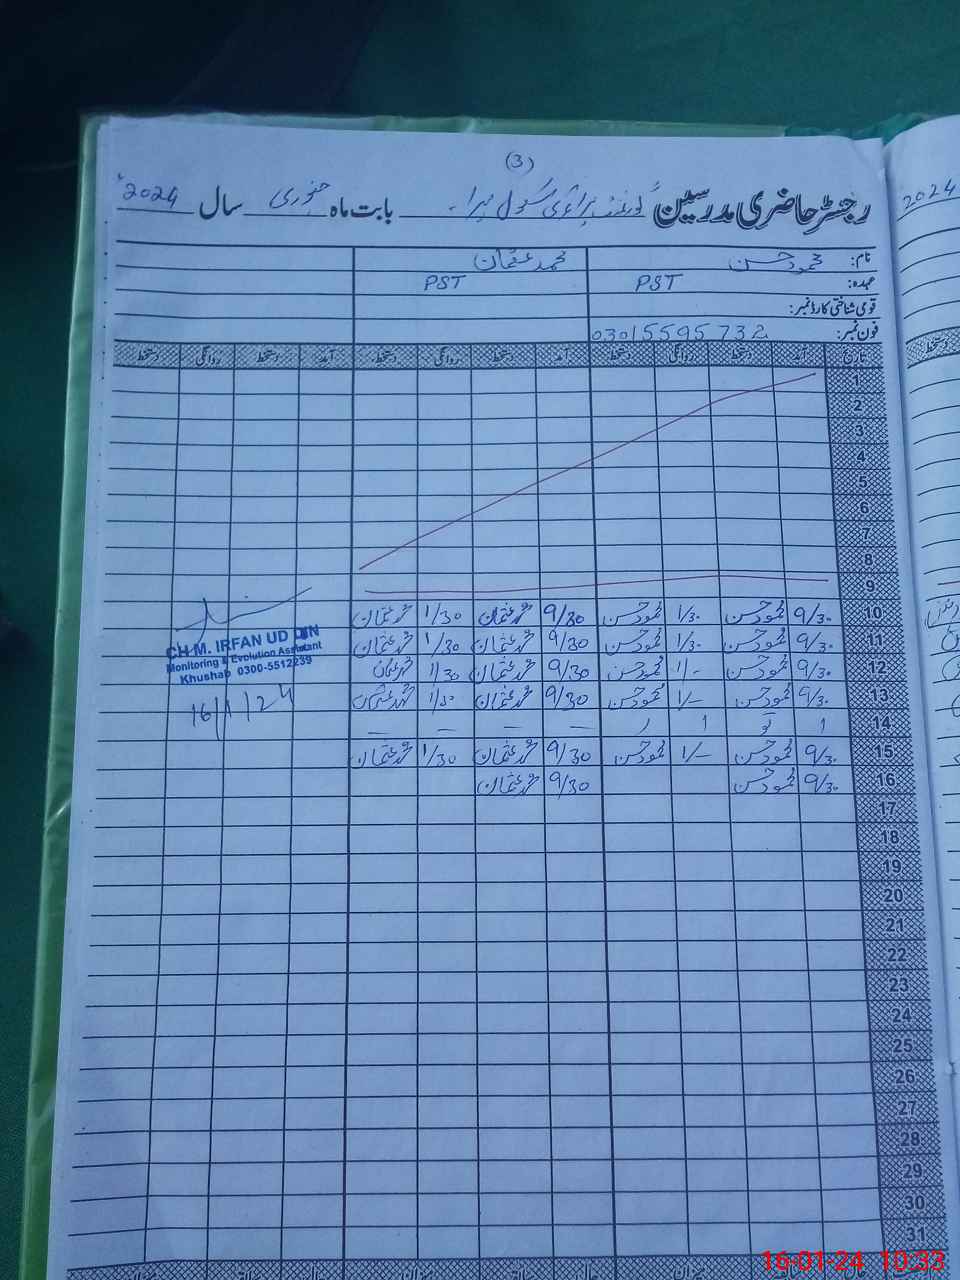 (3)
رجسٹر حاضری مدرسین گورنمنٹ پرائمری سکول بابت ماہ جنوری سال 2024
نام: محمود حسن محمد عثمان
عہدہ: PST PST
قومی شناختی کارڈ نمبر:
فون نمبر: 03015595732
تاریخ آمد دستخط روانگی دستخط آمد دستخط روانگی دستخط آمد دستخط روانگی دستخط
1
2
3
4
5
6
7
8
9
10 9/30 محمود حسن 1/30 محمود حسن 9/30 محمد عثمان 1/30 محمد عثمان
11 9/30 محمود حسن 1/30 محمود حسن 9/30 محمد عثمان 1/30 محمد عثمان
12 9/30 محمود حسن 1/- محمود حسن 9/30 محمد عثمان 1/30 محمد عثمان
13 9/30 محمود حسن 1/- محمود حسن 9/30 محمد عثمان 1/30 محمد عثمان
14 ا تو ا ر — — — —
15 9/30 محمود حسن 1/- محمود حسن 9/30 محمد عثمان 1/30 محمد عثمان
16 9/30 محمود حسن 9/30 محمد عثمان
17
18
19
20
21
22
23
24
25
26
27
28
29
30
31
CH M. IRFAN UD DIN
Monitoring & Evolution Assistant
Khushab 0300-5512239
16/1/24
2024
دستخط
16-01-24 10:33